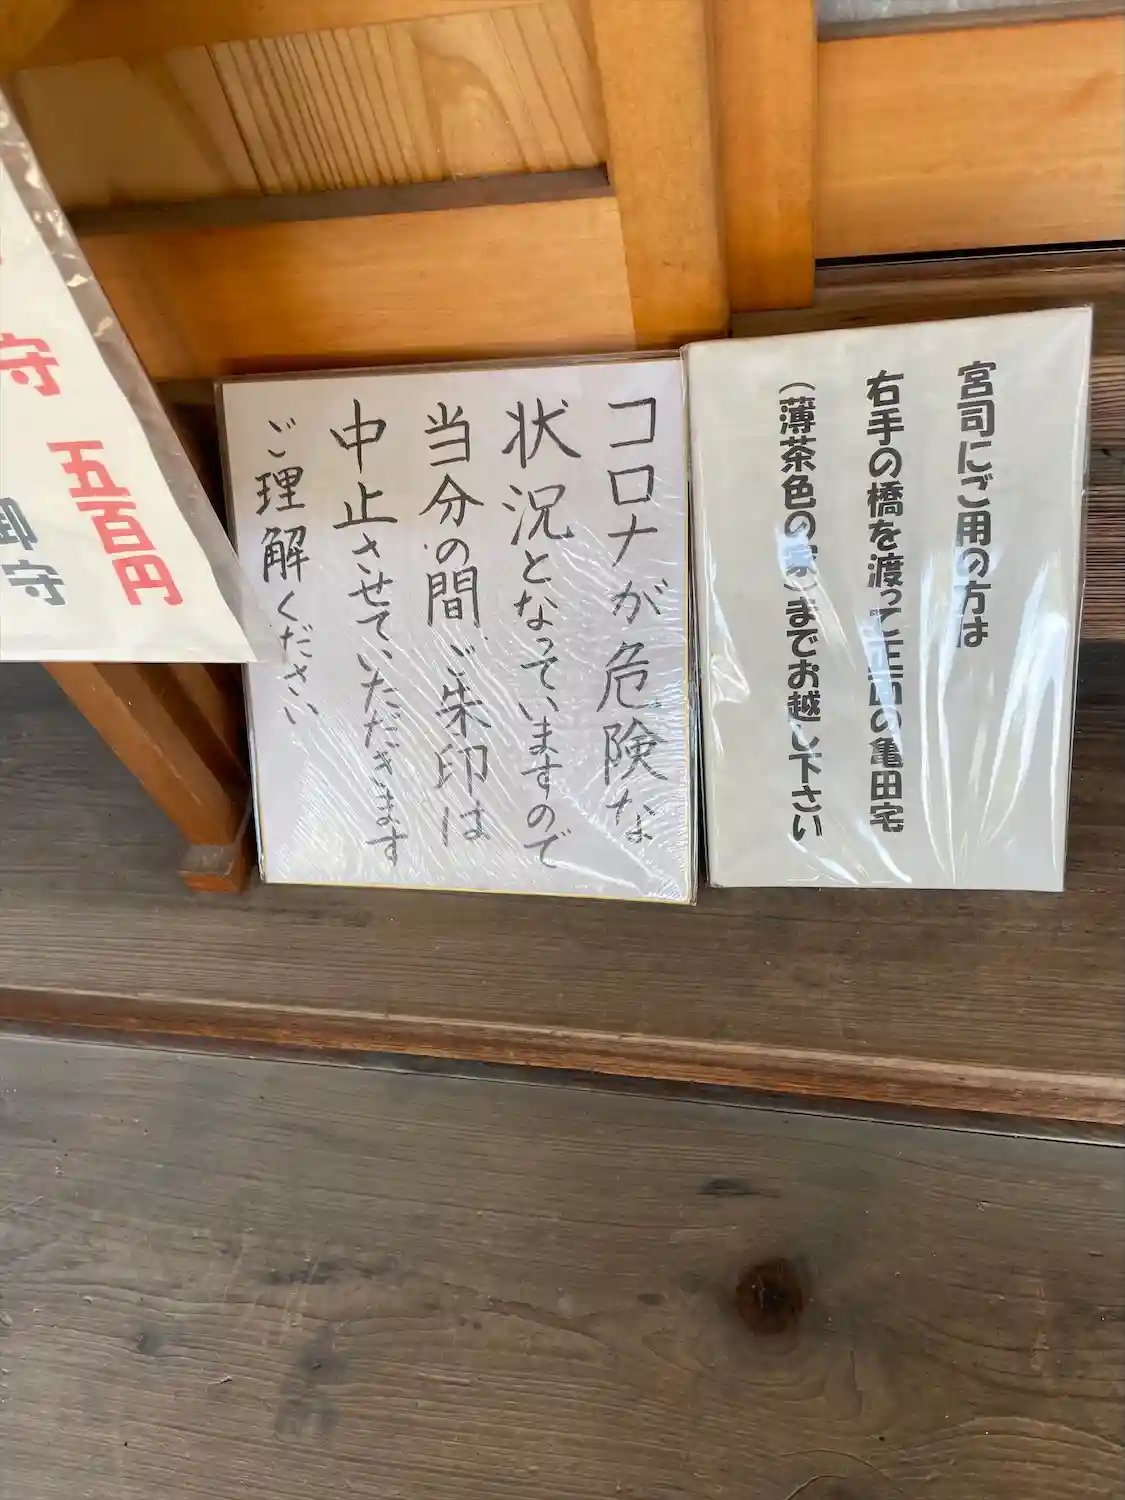 宮司にご用の方は
右手の橋を渡って正面の亀田宅
(薄茶色の家)までお越し下さい
コロナが危険な
状況となっていますので
当分の間ご朱印は
中止させていただきます
ご理解ください
守
五百円
御守